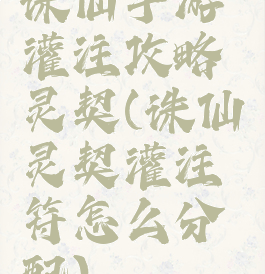 诛仙手游
灌注攻略
灵契(诛仙
灵契灌注
符怎么分
配)